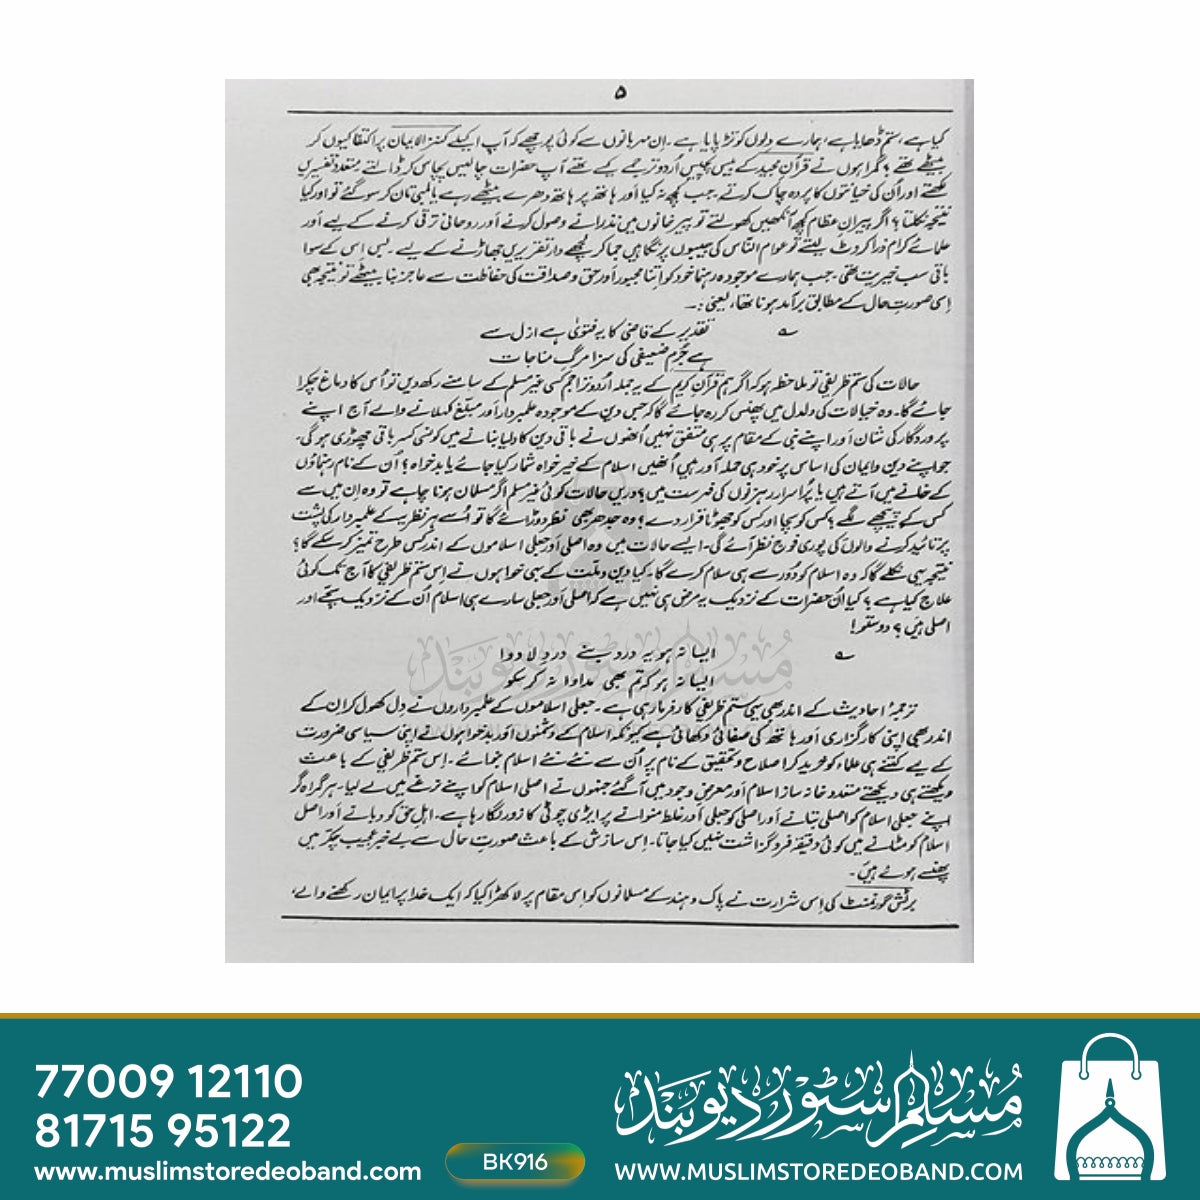 ۵
کیا ہے، ستم ڈھایا ہے، ہمارے دلوں کو تڑپایا ہے۔ اِن مہربانوں سے کوئی پوچھے کہ آپ اکیلے کنز الایمان پر اکتفا کیوں کر
بیٹھے تھے؟ گمراہوں نے قرآن مجید کے بیس پچیس اُردو ترجمے کیے تھے آپ حضرات چالیس پچاس کر ڈالتے متعدد تفسیریں
لکھتے اور اُن کی خیانتوں کا پردہ چاک کرتے۔ جب کچھ نہ کیا اور ہاتھ پر ہاتھ دھرے بیٹھے رہے یا لمبی تان کر سو گئے تو اور کیا
نتیجہ نکلتا؟ اگر پیرانِ عظام کچھ آنکھیں کھولتے تو پیر خانوں میں نذرانے وصول کرنے اور روحانی ترقی کرنے کے لیے اور
علمائے کرام ذرا کروٹ لیتے تو عوام الناس کی جیبوں پر نگاہیں جما کر لچھے دار تقریریں جھاڑنے کے لیے۔ بس اِس کے سوا
باقی سب خیریت تھی۔ جب ہمارے موجودہ رہنما خود کو اتنا مجبور اور حق و صداقت کی حفاظت سے عاجز بنا بیٹھے تو نتیجہ بھی
اِسی صورتِ حال کے مطابق برآمد ہونا تھا، یعنی :۔
؎ تقدیر کے قاضی کا یہ فتویٰ ہے ازل سے
ہے جُرمِ ضعیفی کی سزا مرگِ مناجات
حالات کی ستم ظریفی تو ملاحظہ ہو کہ اگر ہم قرآن کریم کے یہ جملہ اُردو تراجم کسی غیر مسلم کے سامنے رکھ دیں تو اُس کا دماغ چکرا
جائے گا۔ وہ خیالات کی دلدل میں پھنس کر رہ جائے گا کہ جس دین کے موجودہ علمبردار اور مبلّغ کہلانے والے آج اپنے
پروردگار کی شان اور اپنے نبی کے مقام پر ہی متفق نہیں اُنھوں نے باقی دین کا دلیا بنانے میں کونسی کسر باقی چھوڑی ہو گی۔
جو اپنے دین و ایمان کی اساس پر خود ہی حملہ آور ہیں اُنھیں اسلام کے خیر خواہ شمار کیا جائے یا بد خواہ؟ اُن کے نام رہنماؤں
کے خانے میں آتے ہیں یا پُراسرار رہزنوں کی فہرست میں؟ دریں حالات کوئی غیر مسلم اگر مسلمان ہونا چاہے تو وہ اِن میں سے
کس کے پیچھے لگے؟ کس کو سچا اور کس کو جھوٹا قرار دے؟ وہ جدھر بھی نظر دوڑائے گا تو اُسے ہر نظریے کے علمبردار کی پشت
پر تائید کرنے والوں کی پوری فوج نظر آئے گی۔ ایسے حالات میں وہ اصلی اور جعلی اسلاموں کے اندر کس طرح تمیز کر سکے گا؟
نتیجہ یہی نکلے گا کہ وہ اسلام کو دُور سے ہی سلام کرے گا۔ کیا دین و ملّت کے بہی خواہوں نے اِس ستم ظریفی کا آج تک کوئی
علاج کیا ہے؟ کیا اُن حضرات کے نزدیک یہ مرض ہی نہیں ہے کہ اصلی اور جعلی سارے ہی اسلام اُن کے نزدیک سچّے اور
اصلی ہیں؟ دوستو!
؎ ایسا نہ ہو یہ درد بنے دردِ لا دوا
ایسا نہ ہو کہ تم بھی مداوا نہ کر سکو
ترجمۂ احادیث کے اندر بھی یہی ستم ظریفی کارفرما رہی ہے۔ جعلی اسلاموں کے علمبرداروں نے دِل کھول کر اِن کے
اندر بھی اپنی کارگزاری اور ہاتھ کی صفائی دکھائی ہے کیونکہ اسلام کے دشمنوں اور بدخواہوں نے اپنی سیاسی ضرورت
کے لیے کتنے ہی علماء کو خرید کر اصلاح و تحقیق کے نام پر اُن سے نئے نئے اسلام بنوائے۔ اِس ستم ظریفی کے باعث
دیکھتے ہی دیکھتے متعدد خانہ ساز اسلام اور معرضِ وجود میں آ گئے جنہوں نے اصلی اسلام کو اپنے نرغے میں لے لیا۔ ہر گمراہ گر
اپنے جعلی اسلام کو اصلی بتانے اور اصلی کو جعلی اور غلط منوانے پر ایڑی چوٹی کا زور لگا رہا ہے۔ اہلِ حق کو دبانے اور اصل
اسلام کو مٹانے میں کوئی دقیقہ فروگزاشت نہیں کیا جاتا۔ اِس سازش کے باعث صورتِ حال سے بے خبر عجیب چکر میں
پھنسے ہوئے ہیں۔
برٹش گورنمنٹ کی اِس شرارت نے پاک و ہند کے مسلمانوں کو اِس مقام پر لا کھڑا کیا کہ ایک خدا پر ایمان رکھنے والے،
مسلم سٹور دیوبند
77009 12110
81715 95122
www.muslimstoredeoband.com
BK916
مسلم سٹور دیوبند
WWW.MUSLIMSTOREDEOBAND.COM